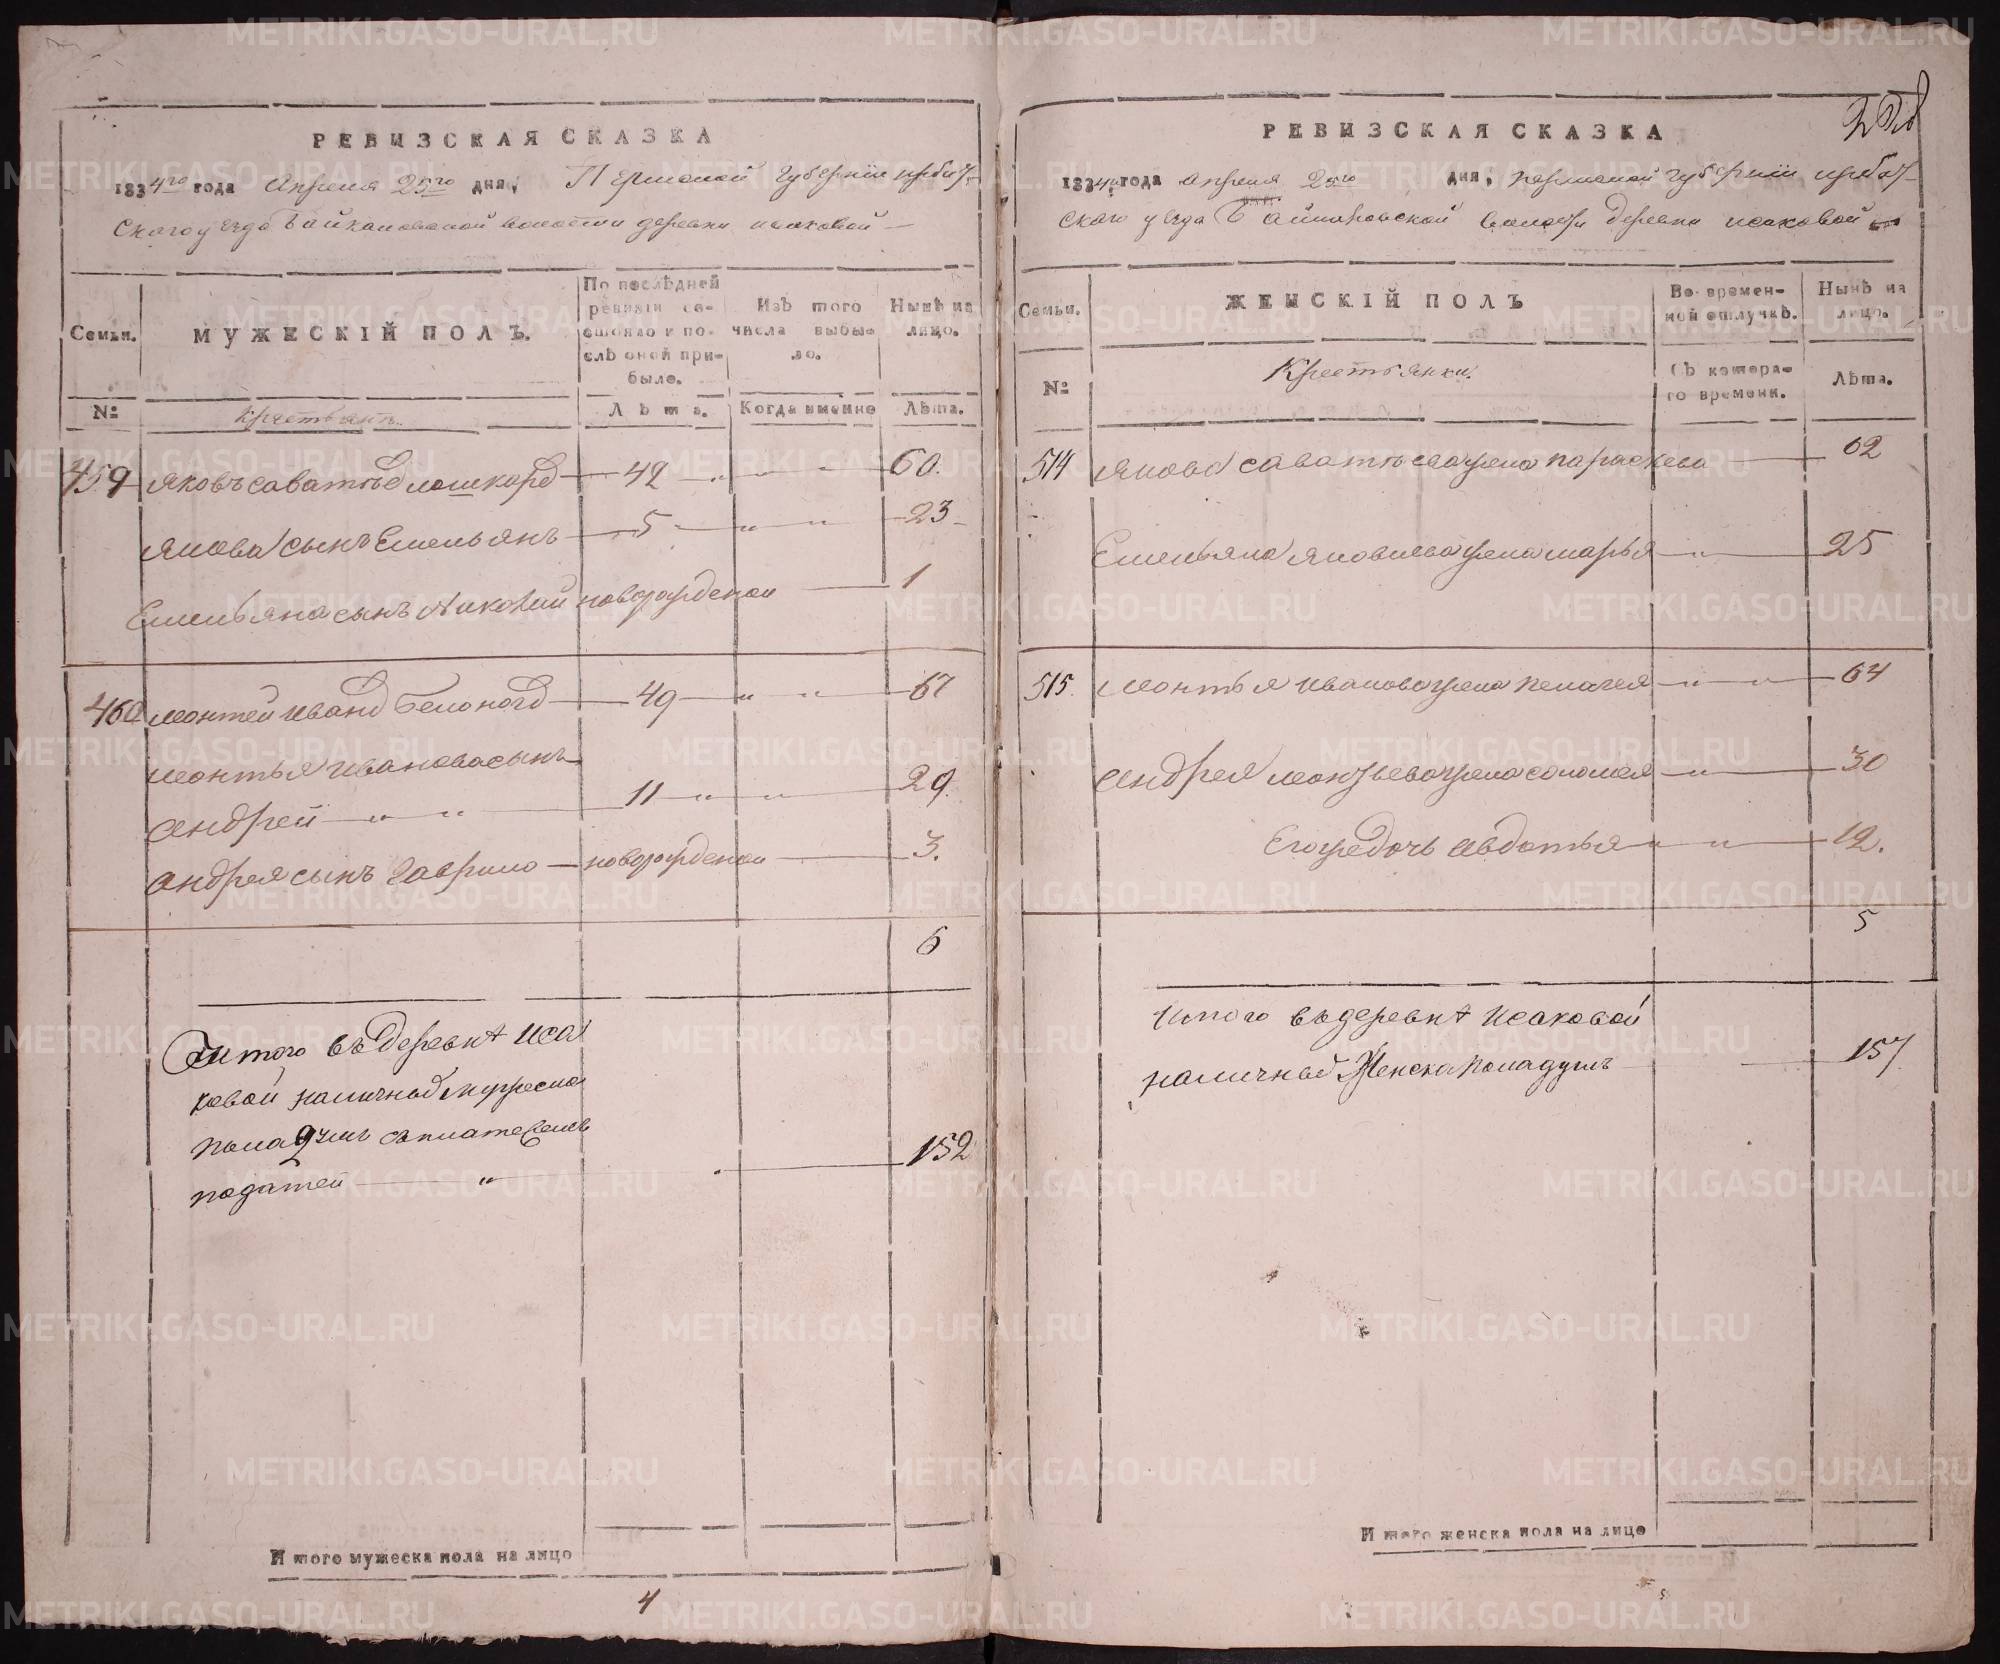 РЕВИЗСКАЯ СКАЗКА
1834го года Апреля 25го дня, Пермской Губернiи ирбит-
ского уезда Байкаловской волости деревни исаковой
Семьи.
МУЖЕСКІЙ ПОЛЪ.
По послѣдней ревизіи состояло и послѣ оной прибыло.
Изъ того числа выбыло.
Нынѣ на лицо.
№
Крестьянъ
Лѣта.
Когда именно
Лѣта.
459 Яковъ саватѣев 42 " " 60.
Якова сынъ Емельянъ 5 " " 23
Емельяна сынъ Николай новорожденой 1
460 Леонтей Иванов Белоногов 49 " " 67
Леонтья Иванова сынъ
Андрей " " 11 " " 29.
Андрея сынъ Гаврило новорожденои 3.
6
Итого въ деревнѣ Иса
ковой наличных мужеска
пола душ съ платежемъ
податей " 152
И того мужеска пола на лицо
4
РЕВИЗСКАЯ СКАЗКА
1834го года апреля 25го дня, пермской губернiи ирбит-
ского уезда Байкаловской волости деревни исаковой
Семьи.
ЖЕНСКІЙ ПОЛЪ
Во времен-ной отлучкѣ.
Нынѣ на лицо.
№
Крестьянки.
Съ котора-го времени.
Лѣта.
514 Якова саватѣева жена параскева 62
Емельяна Яковлева жена марья " 25
515. Леонтья иванова жена пелагея " " 64
Андрея леонтьева жена соломея " 30
Его же дочь авдотья " " 12.
5
Итого въ деревнѣ Исаковой
наличных Женска пола душъ 157
И того женска пола на лицо
METRIKI.GASO-URAL.RU